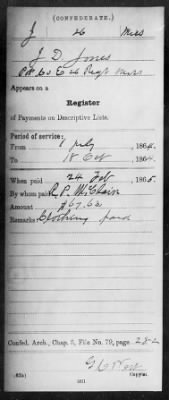 (CONFEDERATE.)
J 26 Miss
J. D. Jones
Pvt Co E 26 Regt Miss
Appears on a
Register
of Payments on Descriptive Lists.
Period of service:
From 1 July, 1864.
To 18 Oct, 1864.
When paid 24 Feb, 1865.
By whom paid R. P. McClain
Amount $67.63
Remarks: Clothing paid
Confed. Arch., Chap. 5, File No. 79, page 282
Copyist.